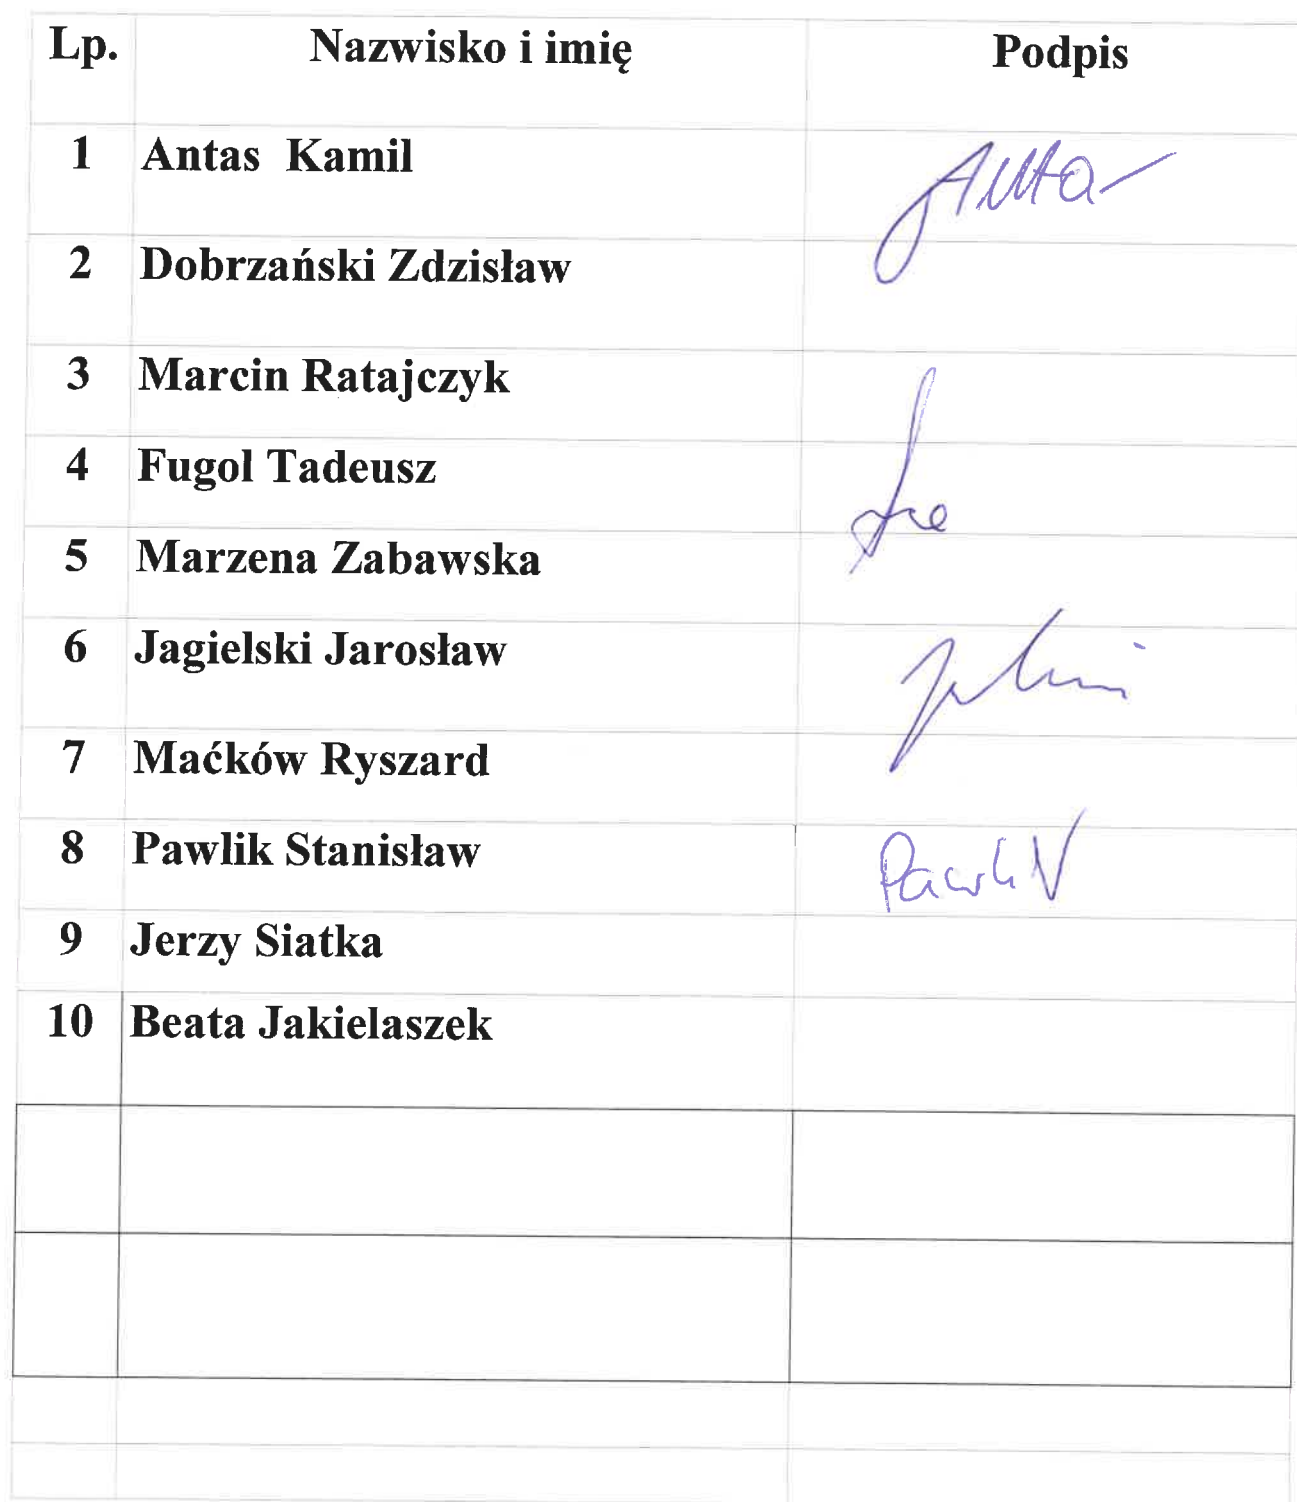 Lp. Nazwisko i imię Podpis
1 Antas Kamil
2 Dobrzański Zdzisław
3 Marcin Ratajczyk
4 Fugol Tadeusz
5 Marzena Zabawska
6 Jagielski Jarosław
7 Maćków Ryszard
8 Pawlik Stanisław
9 Jerzy Siatka
10 Beata Jakielaszek